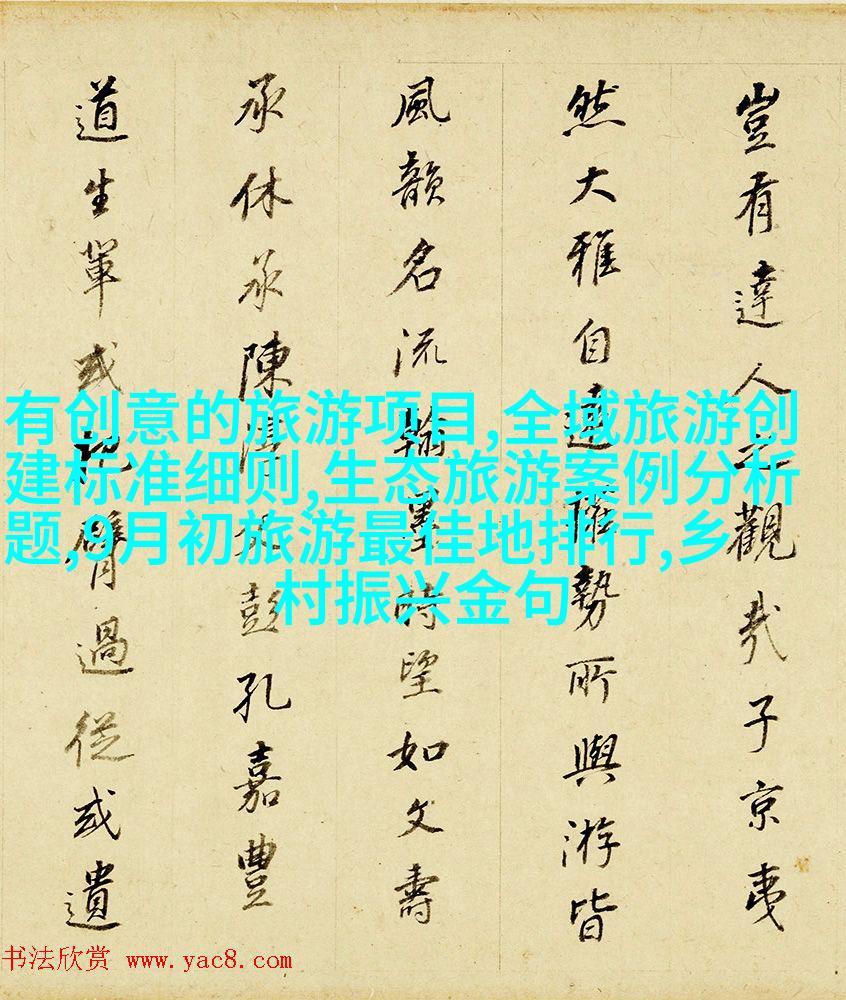 豈有達人之觀哉子京夷
然大雅自遠權勢所與游皆
風韻名流翰墨時望如文壽
承休承陳淳彭孔嘉豐
道生輩或把臂過從或遺
有创意的旅游项目,全域旅游创
建标准细则,生态旅游案例分析
题,9月初旅游最佳地排行,乡
村振兴金句
书法欣赏 www.yac8.com